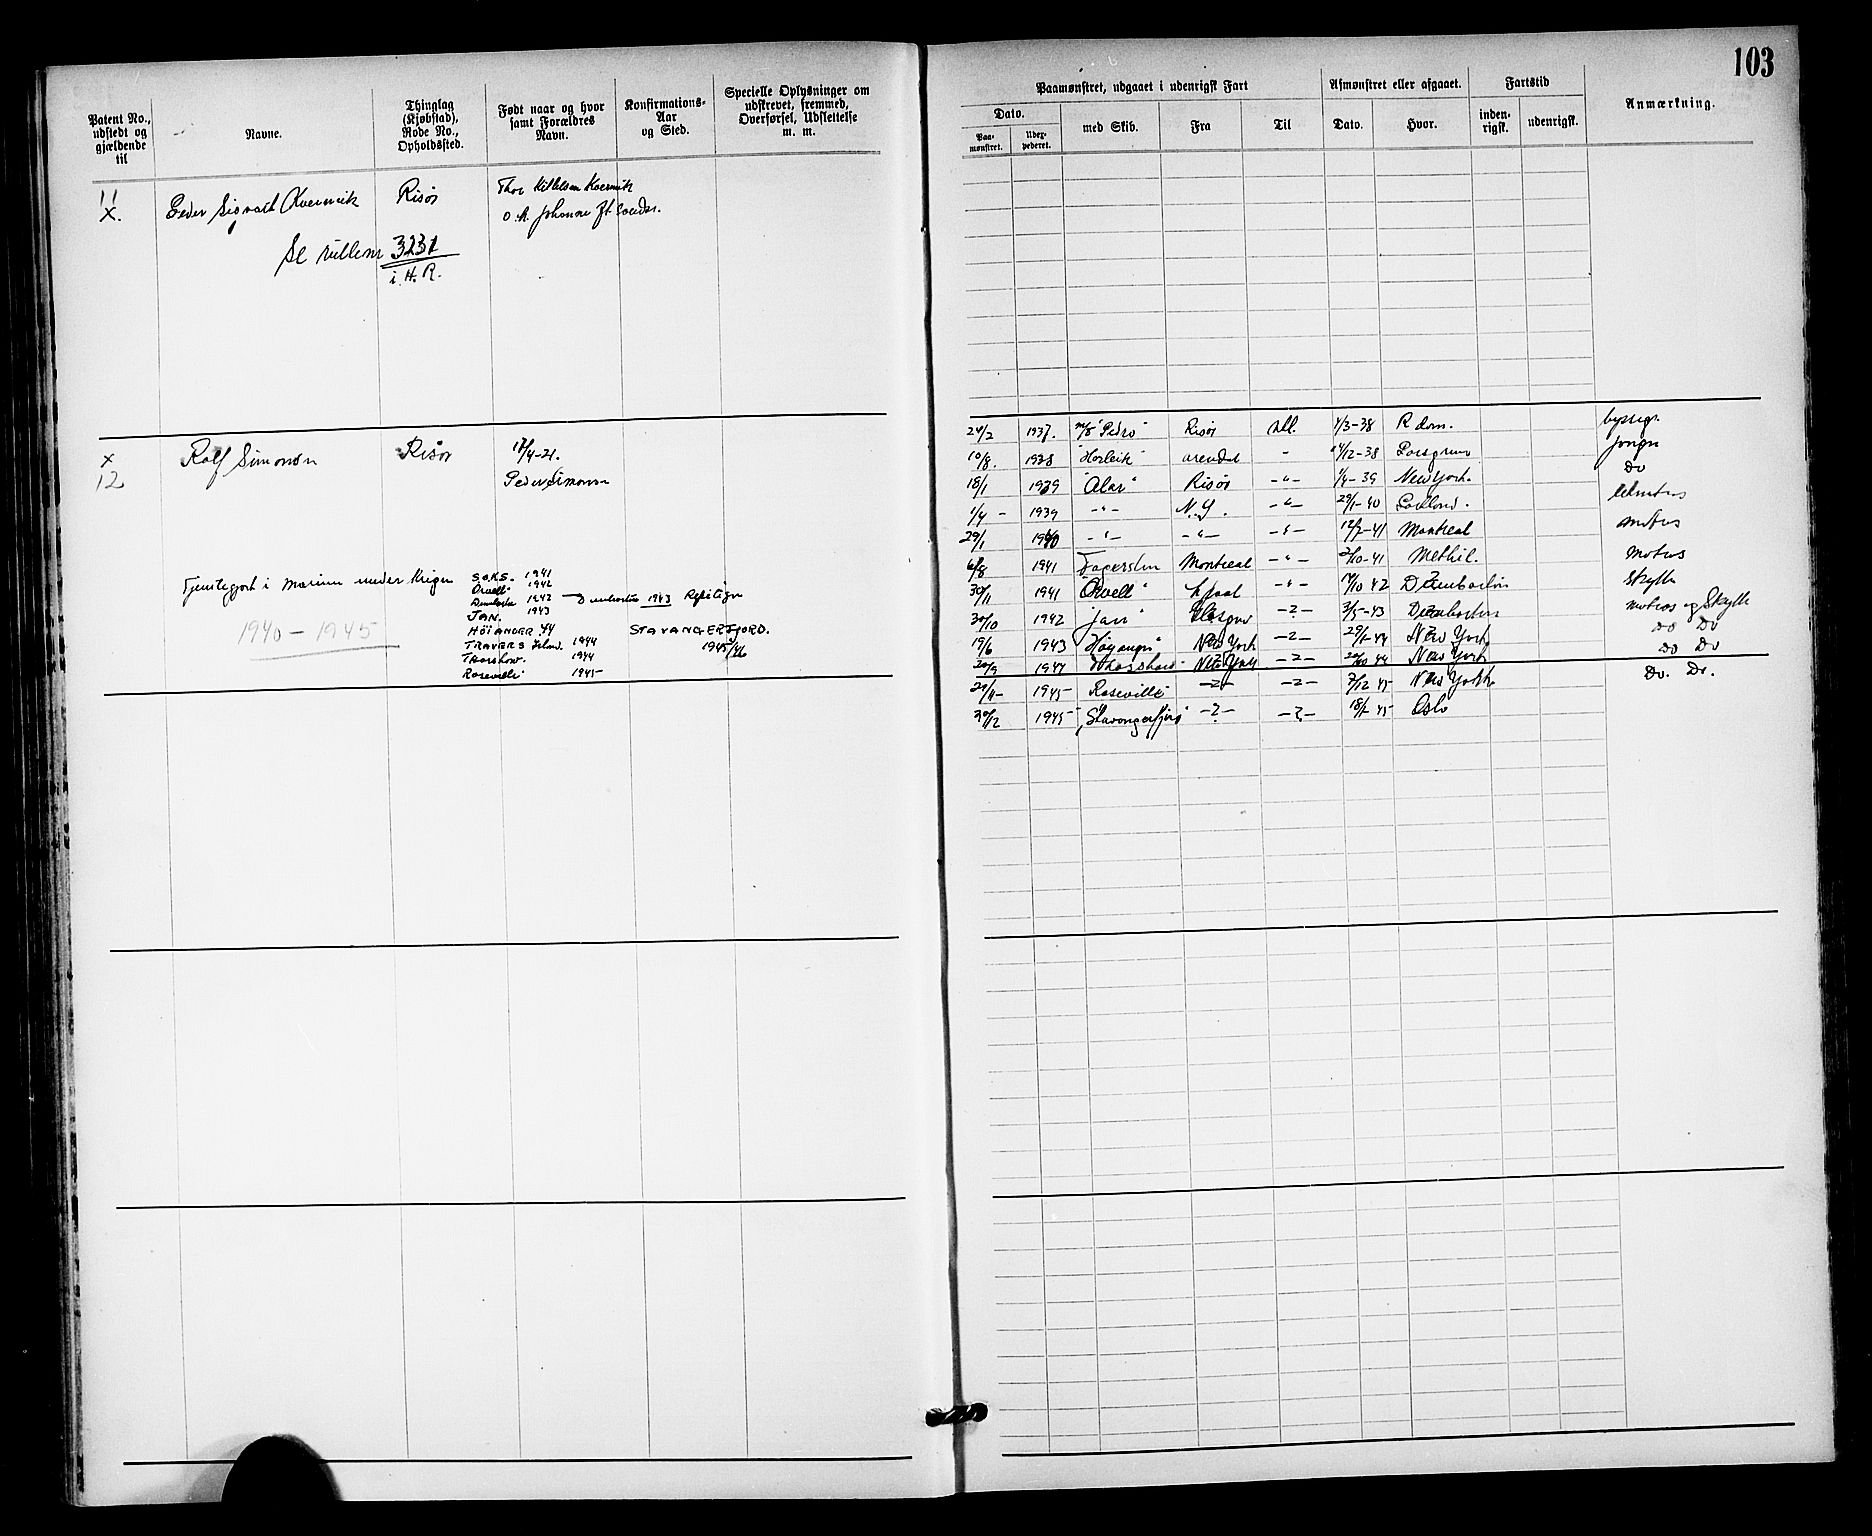 103
Patent No., udstedt og gjældende til
Navne.
Thinglag (Kjøbstad), Rode No., Opholdssted.
Født naar og hvor samt Forældres Navn.
Konfirmations-Aar og Sted.
Specielle Oplysninger om udskrevet, fremmed, Overførsel, Udslettelse m. m.
Paamønstret, udgaaet i udenrigsk Fart
Afmønstret eller afgaaet.
Fartstid
Anmærkning.
Dato.
Paa-mønstret.
med Skib.
Fra
Til
Dato.
Hvor.
inden-rigsk.
udenrigsk.
11 X.
Peder Sigvart Kvernvik
Risør
Thor Kittelsen Kvernvik
Se rullenr 3231
i H. R.
X 12
Rolf Simonsen
Risør
17/4-21.
Peder Simonsen
Tjenestegjort i marinen under krigen
1940 – 1945
SOKS. 1941
Orwell 1942
1942 – Dumbarton 1943
JAN. 1943
HÖIANGER 44
STAVANGERFJORD.
TRAVERS 1944
1945/46
Thorshov. 1944
Roseville 1945
24/2 1937. m/s "Pedro" Risør All. 1/3-38 R.dam. byssegt.
10/8. 1938 "Horleik" Arendal - 14/12-38 Porsgrunn jungm
18/1 1939 "Alar" Risør -"- 1/4-39 New York. Do
1/4 - 1939 -"- N.Y. -"- 29/1-40 lettmtros
29/1 1940 -"- -"- -"- 12/7-41 Montreal matros
6/8 1941 Fagersten Montreal -"- 2/10-41 Methil. matros
30/11 1941 "Orwell" L.pool -"- 17/10 42 Dumbarton Skytter
30/10 1942 "Jan" Glasgow -"- 3/5-43 Dumbarton matros og Skytter
19/6 1943 "Høyanger" New York -"- 29/1-44 New York Do Do
20/9 1944 Thorshov New York -"- 20/10 44 New York Do Do
29/11- 1945- Roseville -"- -"- 7/12 45 New York Do. Do.
30/12 1945 "Stavangerfjord" -"- -"- 18/1 45 Oslo